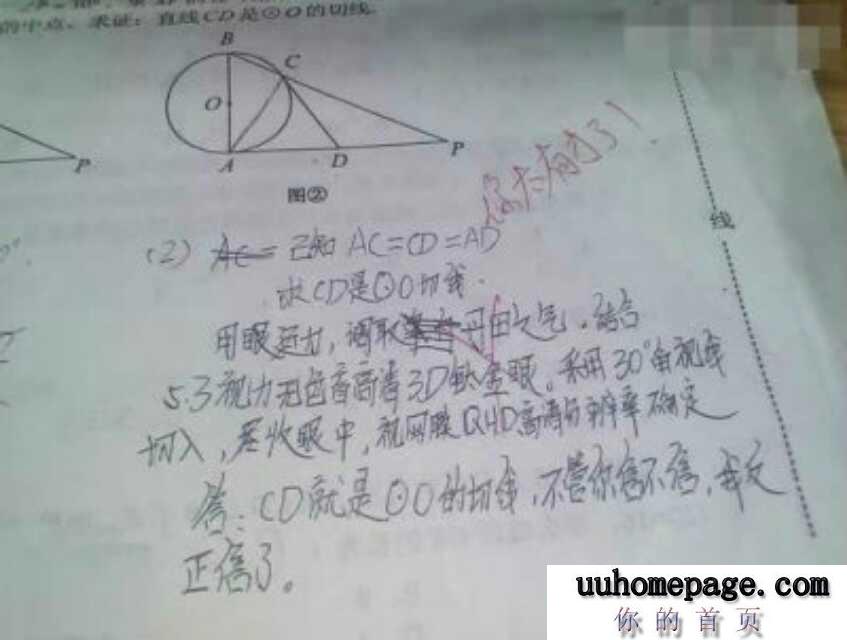 的中点。求证：直线CD是⊙O的切线.
B
C
O
A
D
P
P
图②
你太有才了！
线
(2) 已知 AC=CD=AD
求CD是⊙O切线.
用眼运力，调取丹田之气。结合
5.3视力无齿音高清3D钛金眼。采用30°角视线
切入，尽收眼中，视网膜QHD高清分辨率确定
答：CD就是⊙O的切线，不管你信不信，我反
正信了。
uuhomepage.com
你的首页